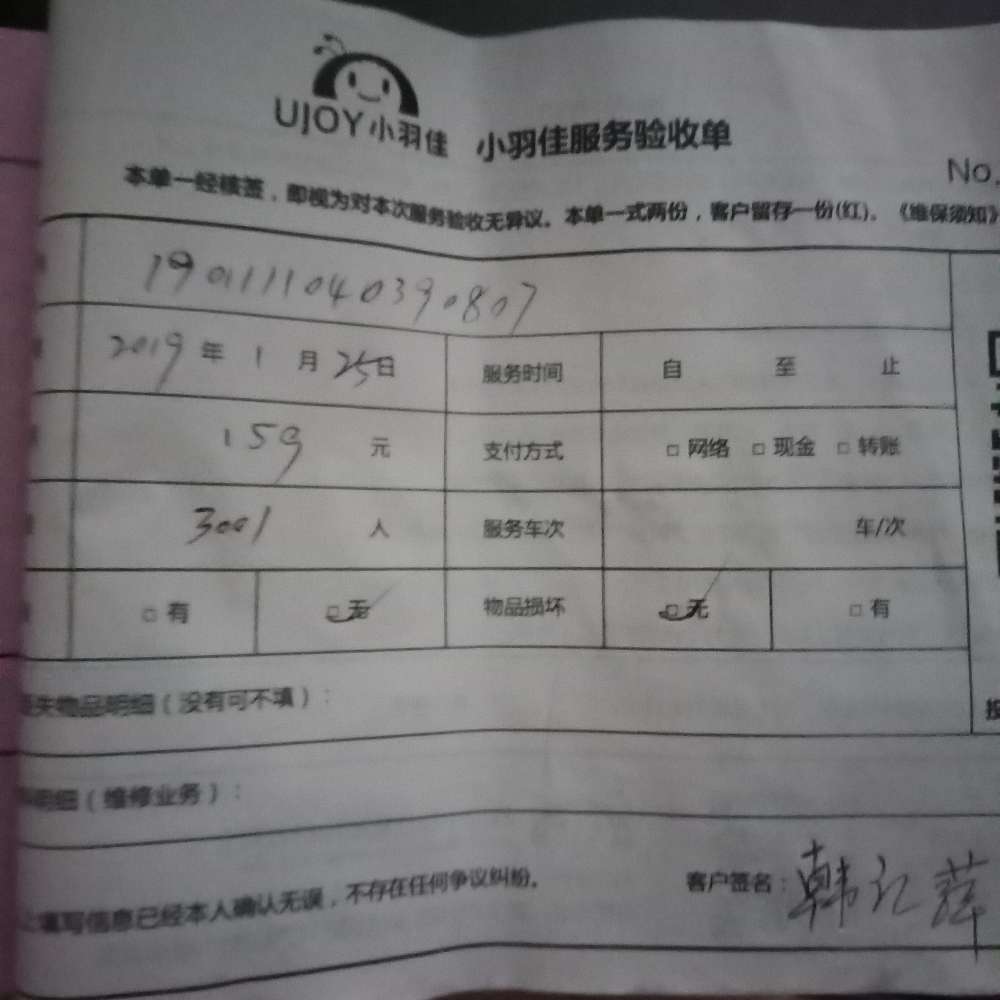 UJOY小羽佳 小羽佳服务验收单
No.
本单一经核签，即视为对本次服务验收无异议。本单一式两份，客户留存一份(红)。《维保须知》
190111040390807
2019 年 1 月 25 日 服务时间 自 至 止
159 元 支付方式 □ 网络 □ 现金 □ 转账
3001 人 服务车次 车/次
□ 有 □ 无 物品损坏 □ 无 □ 有
失物品明细（没有可不填）：
明细（维修业务）：
填写信息已经本人确认无误，不存在任何争议纠纷。 客户签名：韩